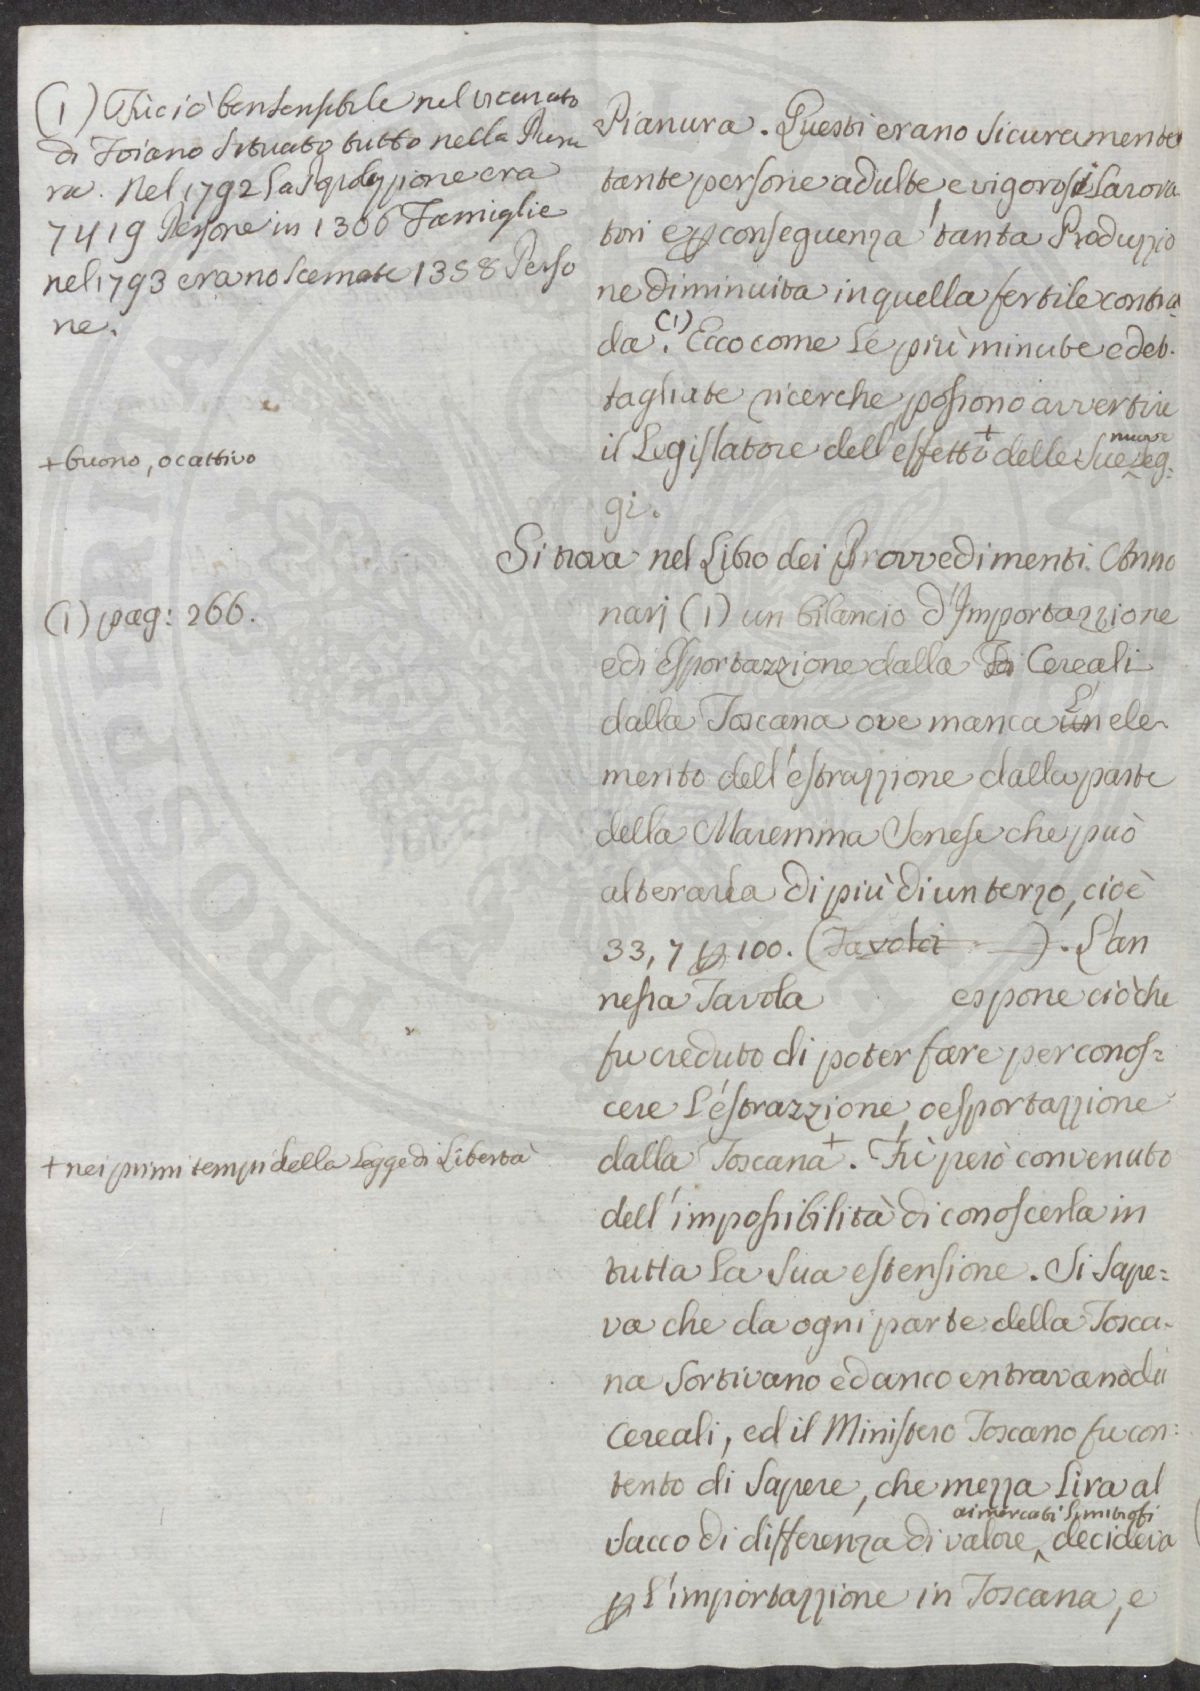 (1) Fù ciò ben sensibile nel vicariato
di Foiano situato tutto nella Pianu
ra. Nel 1792 la Popolazzione era
7419 Persone in 1306 Famiglie
nel 1793 erano scemate 1358 Perso
ne.
+ buono, o cattivo
(1) pag: 266.
+ nei primi tempi della Legge di Libertà
Pianura. Questi erano sicuramente
tante persone adulte, e vigorosi Lavora
tori e p conseguenza tanta Produzzio
ne diminuita in quella fertile contra
da (1). Ecco come le più minute e det-
tagliate ricerche possono avvertire
il Legislatore dell'effetto + delle sue nuove Leg=
gi.
Si trova nel Libro dei Provvedimenti Anno
narj (1) un bilancio d'Importazzione
e di Esportazzione dalla di Cereali
dalla Toscana ove manca un L' ele-
mento dell'estrazzione dalla parte
della Maremma Senese che può
alterarla di più di un terzo, cioè
33,7 p 100. (Tavola ). L'an
nessa Tavola espone ciò che
fu creduto di poter fare per conos=
cere L'estrazzione, o esportazzione
dalla Toscana +. Fù però convenuto
dell'impossibilità di conoscerla in
tutta la sua estensione. Si sape=
va che da ogni parte della Tosca-
na sortivano ed anco entravano dei
Cereali, ed il Ministero Toscano fu con=
tento di sapere, che mezza Lira al
sacco di differenza di valore ai mercati Limitrofi decideva
p L'importazzione in Toscana, e